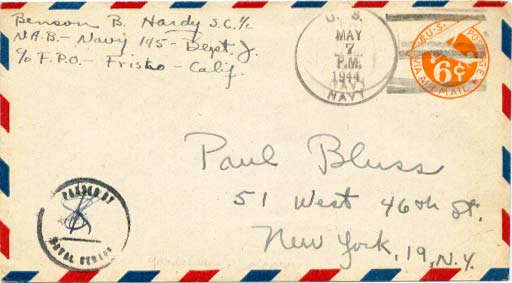 Benson B. Hardy S.C. 1/c
N.A.B. - Navy 145 - Dept. J.
c/o F.P.O. - Frisko - Calif.
U. S.
MAY
7
P.M.
1944
NAVY
U.S. POSTAGE
6¢
VIA AIR MAIL
Paul Bluss
51 West 46th St.
New York, 19, N.Y.
PASSED BY
NAVAL CENSOR